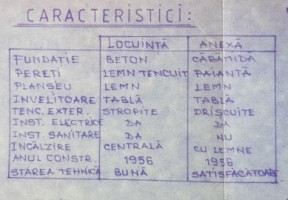 CARACTERISTICI:
LOCUINTĂ ANEXĂ
FUNDATIE BETON CĂRĂMIDĂ
PERETI LEMN TENCUIT PAIANTĂ
PLANSEU LEMN LEMN
INVELITOARE TABLĂ TABLĂ
TENC. EXTER. STROPITE DRISCUITE
INST. ELECTRICE DA DA
INST SANITARE DA NU
INCĂLZIRE CENTRALĂ CU LEMNE
ANUL CONSTR. 1956 1956
STAREA TEHNICĂ BUNĂ SATISFĂCĂTOARE